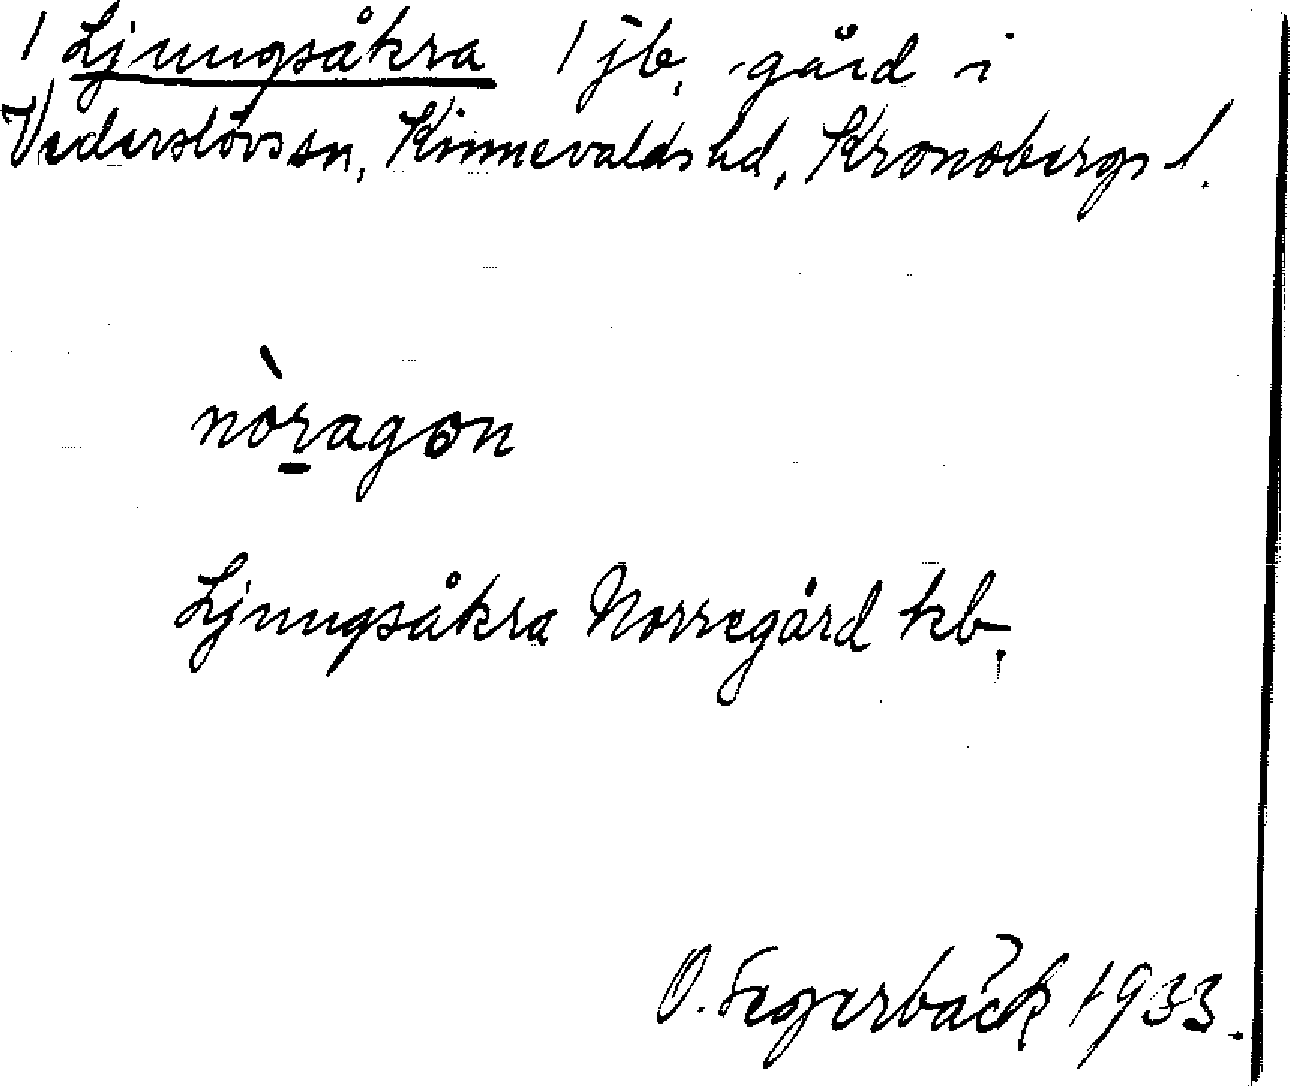 1 Ljungsåkra 1 jb. gård i
Vederslövs sn, Kinnevalds hd, Kronobergs l.
nòragon
Ljungsåkra Norregård kb.
O. Segerbäck 1933.